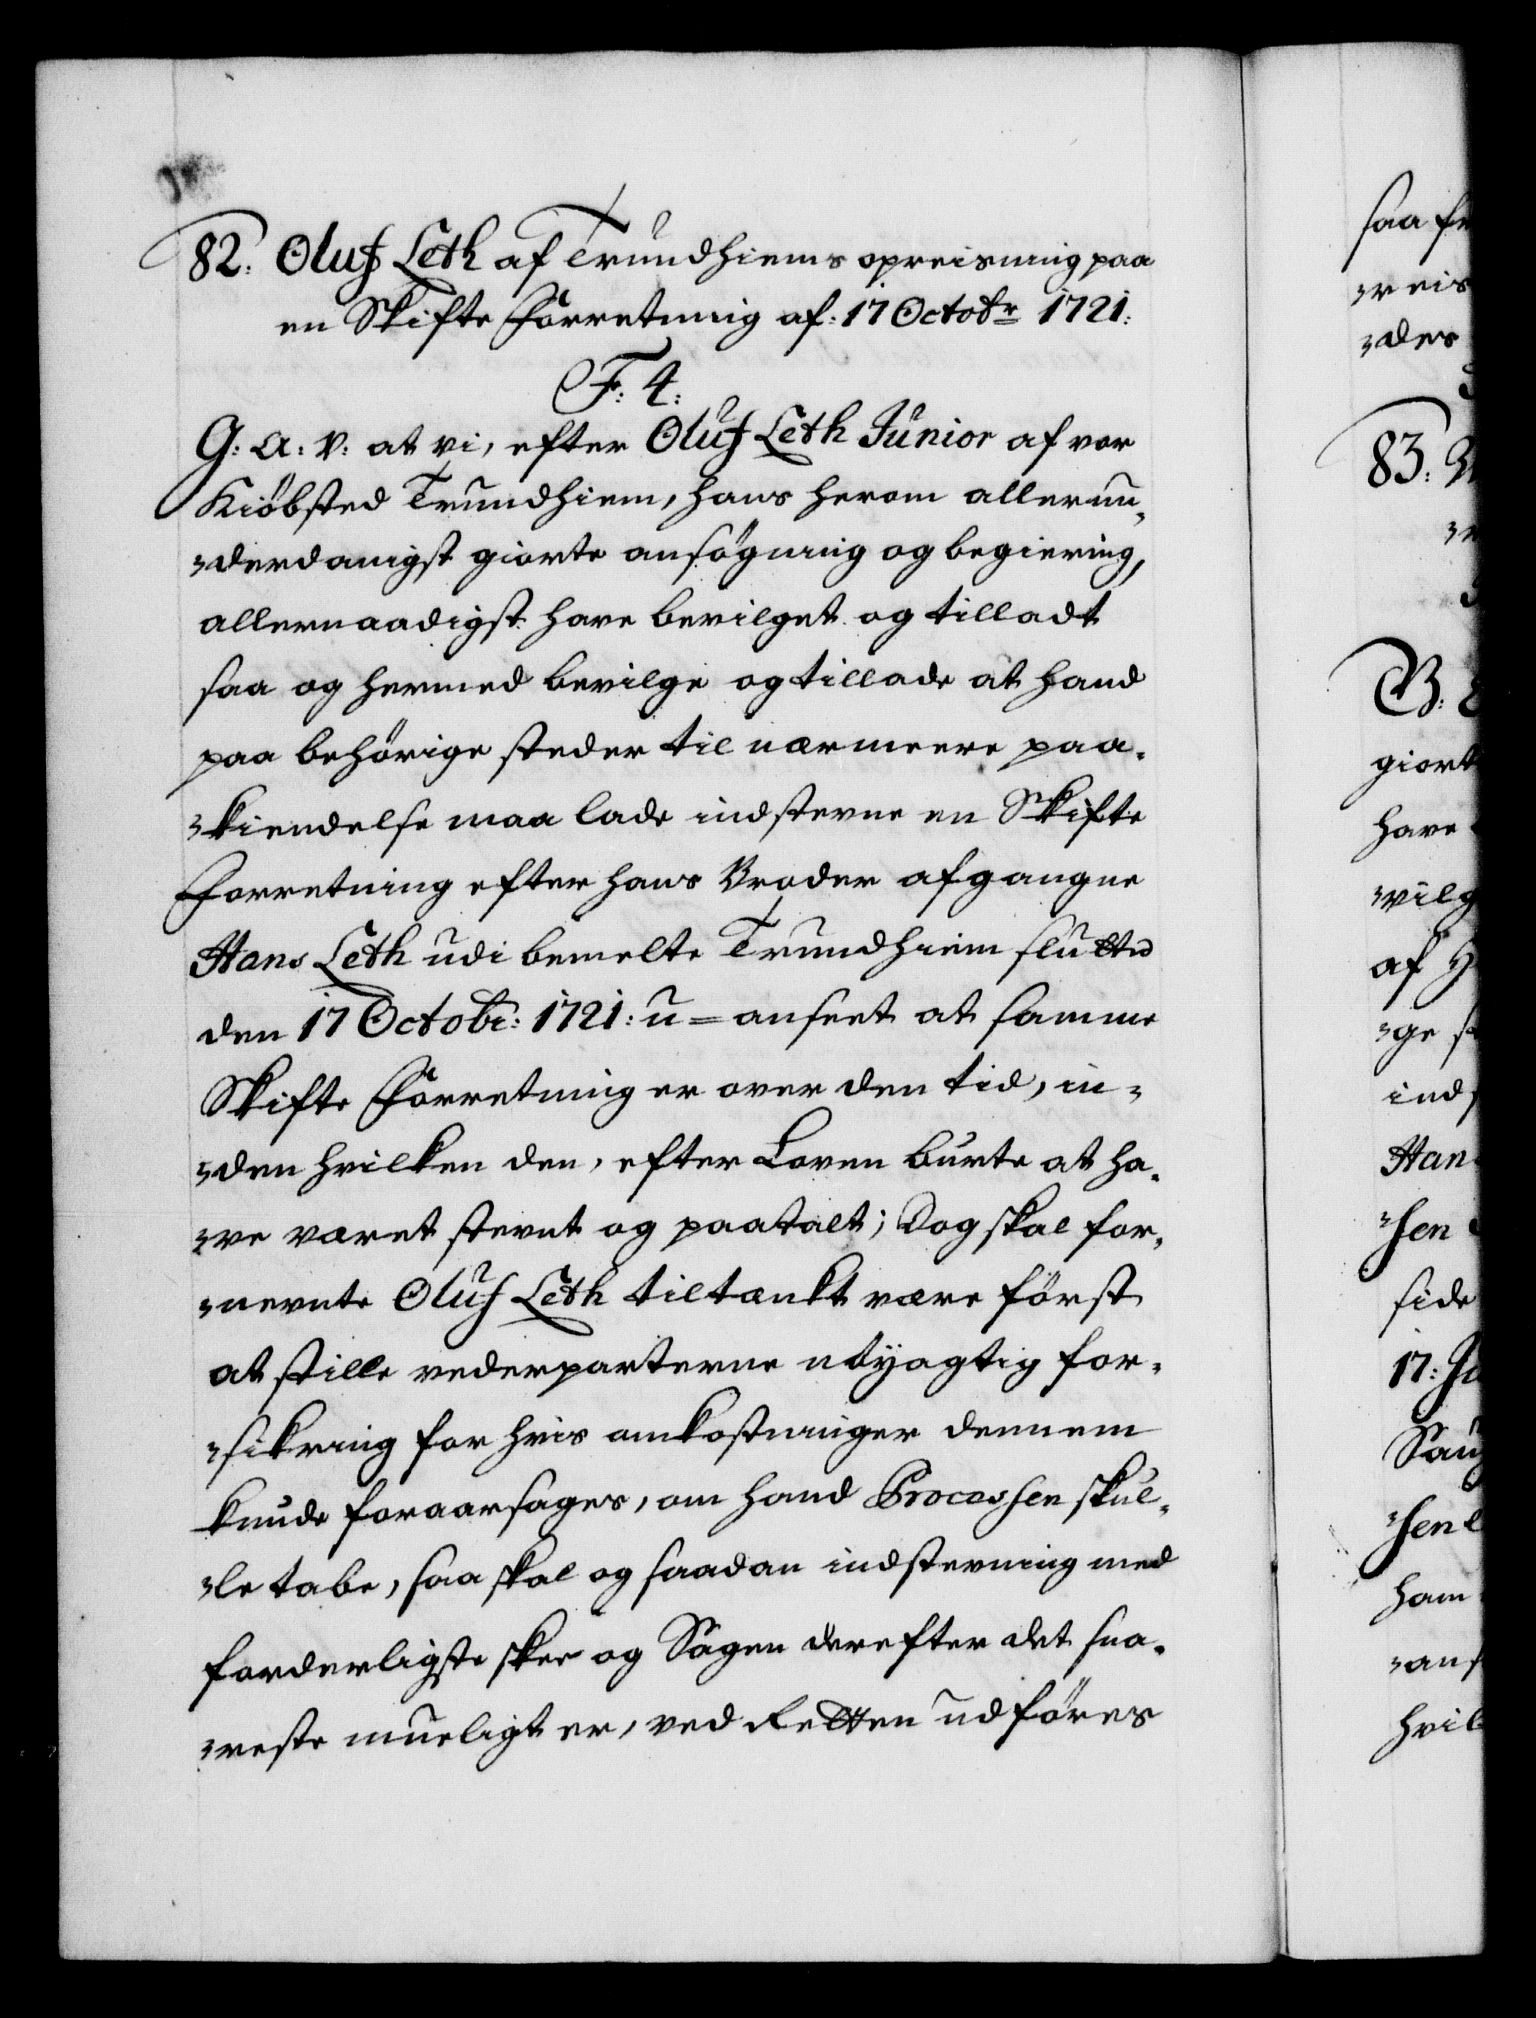 82. Oluf Leth af Trundhiems opreisning paa
en Skifte Forretning af: 17 Octobr 1721:
Fr: 4:
G: A: V: at vi, efter Oluf Leth Junior af vor
Kiöbsted Trundhiem, hans herom allerun-
-derdanigst giorte ansögning og begiering,
allernaadigst have bevilget og tilladt
saa og hermed bevilge og tillade at hand
paa behörige steder til nærmeere paa-
-kiendelse maa lade indstevne en Skifte
Forretning efter hans Broder afgangne
Hans Leth udi bemelte Trundhiem sluttid
den 17 Octobr: 1721: u=anseet at samme
Skifte Forretning er over den tid, in-
-den hvilken den, efter Loven burte at ha-
-ve været stevnt og paatalt; Dog skal for-
-nevnte Oluf Leth tiltænkt være först
at stille vederparterne nöyagtig for-
-sikring for hvis omkostninger dennem
kunde foraarsages, om hand Processen skul-
-le tabe, saa skal og saadan indstevning med
forderligste skee og Sagen derefter det sna-
-reste mueligt er, ved Retten udföres
saa fr
-reis
-des
83:
B:
giort
have
-vilg
af H
-ge s
ind
Han
-sen
side
17: Ja
Sau
-sen
ham
-ans
hvil